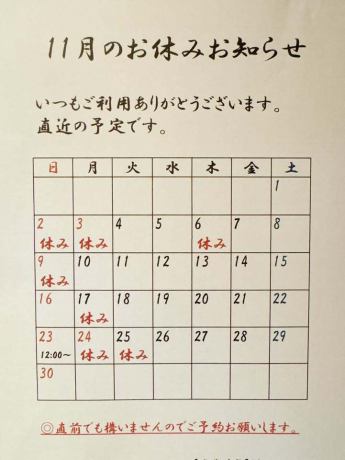 11月のお休みお知らせ
いつもご利用ありがとうございます。
直近の予定です。
日 月 火 水 木 金 土
1
2 3 4 5 6 7 8
休み 休み 休み
9 10 11 12 13 14 15
休み
16 17 18 19 20 21 22
休み
23 24 25 26 27 28 29
12:00〜 休み 休み
30
◎直前でも構いませんのでご予約お願いします。